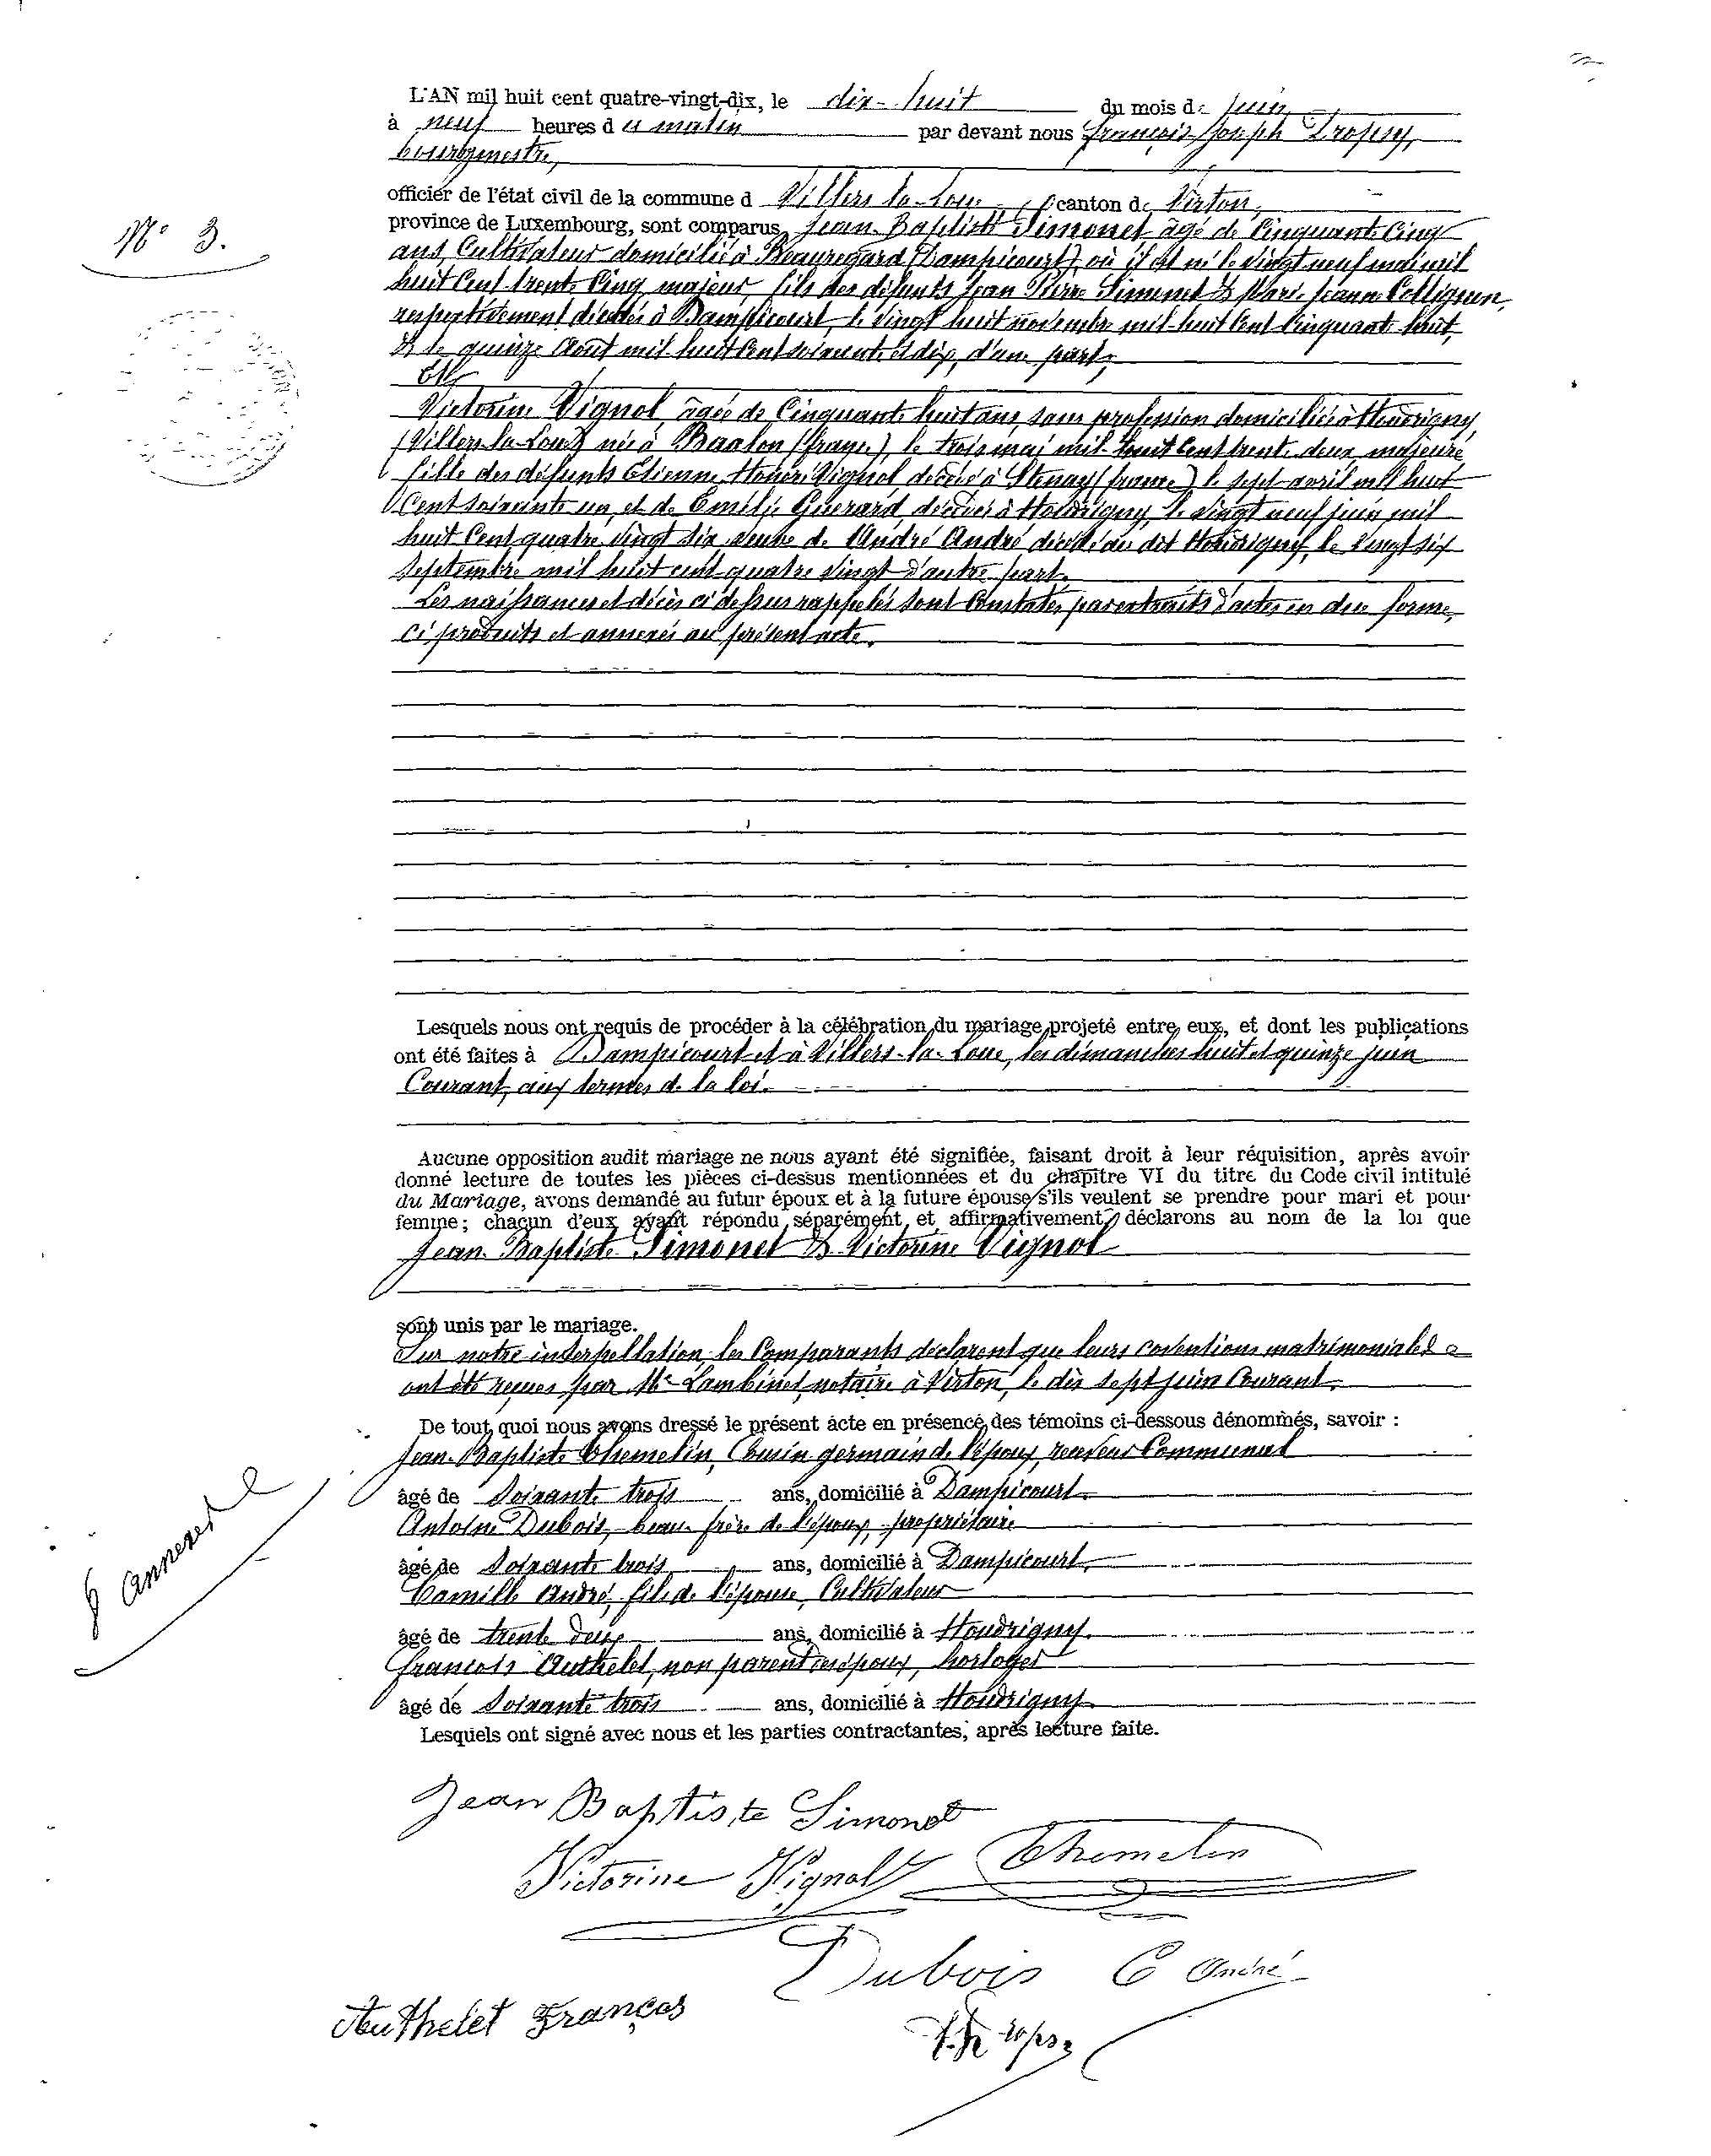 L'AN mil huit cent quatre-vingt-dix, le dix-huit du mois de juin
à neuf heures du matin par devant nous François Joseph Tropsy,
bourgmestre,
officier de l'état civil de la commune d Villers-la-Loue, canton de Virton,
N° 3.
province de Luxembourg, sont comparus Jean-Baptiste Simonet âgé de Cinquante Cinq
ans, Cultivateur domicilié à Beauregard (Dampicourt) où il est né le vingt neuf mai mil
huit Cent trente Cinq, majeur, fils des défunts Jean Pierre Simonet & Marie Jeanne Collignon,
respectivement décédés à Dampicourt, le vingt huit novembre mil huit Cent Cinquante huit,
& le quinze Août mil huit Cent soixante et dix, d'une part,
Et
Victorine Vignol, âgée de Cinquante huit ans, sans profession domiciliée à Houdrigny,
(Villers-la-Loue) née à Baalon (france), le trois mai mil huit Cent trente deux, majeure
fille des défunts Etienne Honoré Vignol décédé à Stenay (france) le sept avril mil huit
Cent soixante un, et de Emélie Guerard, décédée à Houdrigny, le vingt neuf juin mil
huit Cent quatre vingt six veuve de André André décédé au dit Houdrigny, le vingt six
septembre mil huit cent quatre vingt d'autre part.
Les naissances et décès ci dessus rappelés sont Constatés par extraits d'actes en due forme,
ci produits et annexés au présent acte.
Lesquels nous ont requis de procéder à la célébration du mariage projeté entre eux, et dont les publications
ont été faites à Dampicourt et à Villers-la-Loue, les dimanches huit et quinze juin
Courant, aux termes de la loi.
Aucune opposition audit mariage ne nous ayant été signifiée, faisant droit à leur réquisition, après avoir
donné lecture de toutes les pièces ci-dessus mentionnées et du chapitre VI du titre du Code civil intitulé
du Mariage, avons demandé au futur époux et à la future épouse s'ils veulent se prendre pour mari et pour
femme; chacun d'eux ayant répondu séparément et affirmativement, déclarons au nom de la loi que
Jean-Baptiste Simonet & Victorine Vignol
sont unis par le mariage.
Sur notre interpellation, les Comparants déclarent que leurs conventions matrimoniales
ont été reçues par Me Lambinet, notaire à Virton, le dix sept juin Courant.
De tout quoi nous avons dressé le présent acte en présence des témoins ci-dessous dénommés, savoir :
Jean-Baptiste Themelin, Cousin germain de l'époux, receveur Communal
âgé de Soixante trois ans, domicilié à Dampicourt.
Antoine Dubois, beau-frère de l'époux, propriétaire
âgé de Soixante trois ans, domicilié à Dampicourt.
Camille André, fils de l'épouse, Cultivateur
8 annexes
âgé de trente deux ans, domicilié à Houdrigny.
François Authelet, non parent des époux, horloger
âgé de Soixante trois ans, domicilié à Houdrigny.
Lesquels ont signé avec nous et les parties contractantes, après lecture faite.
Jean Baptiste Simonet
Victorine Vignol Themelin
Dubois C André
Authelet François